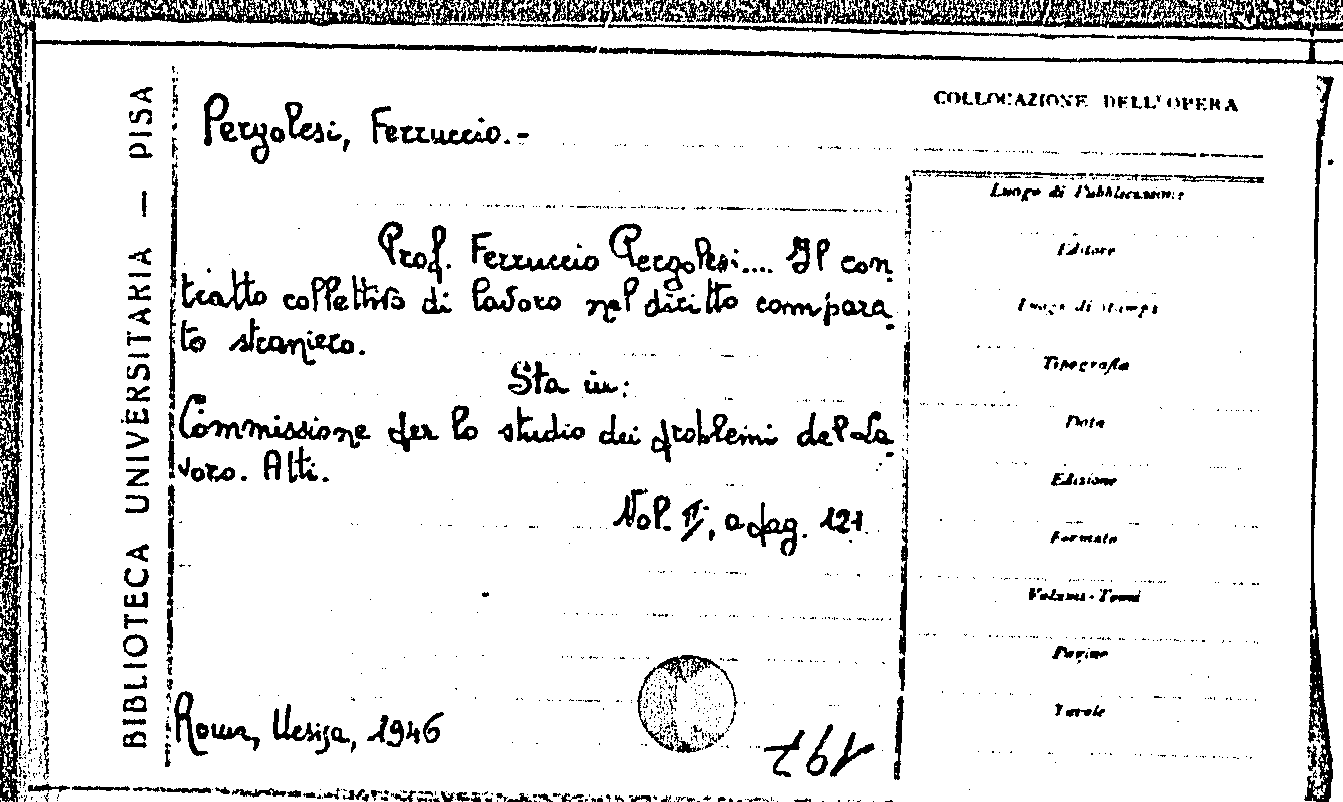 BIBLIOTECA UNIVERSITARIA — PISA
Pergolesi, Ferruccio.-
Prof. Ferruccio Pergolesi.... Il con-
tratto collettivo di lavoro nel diritto compara-
to straniero.
Sta in:
Commissione per lo studio dei problemi del La-
voro. Atti.
Vol. II, a pag. 121
Roma, Uesisa, 1946
COLLOCAZIONE DELL'OPERA
Luogo di Pubblicazione
Editore
Luogo di stampa
Tipografia
Data
Edizione
Formato
Volumi-Tomi
Pagine
Tavole